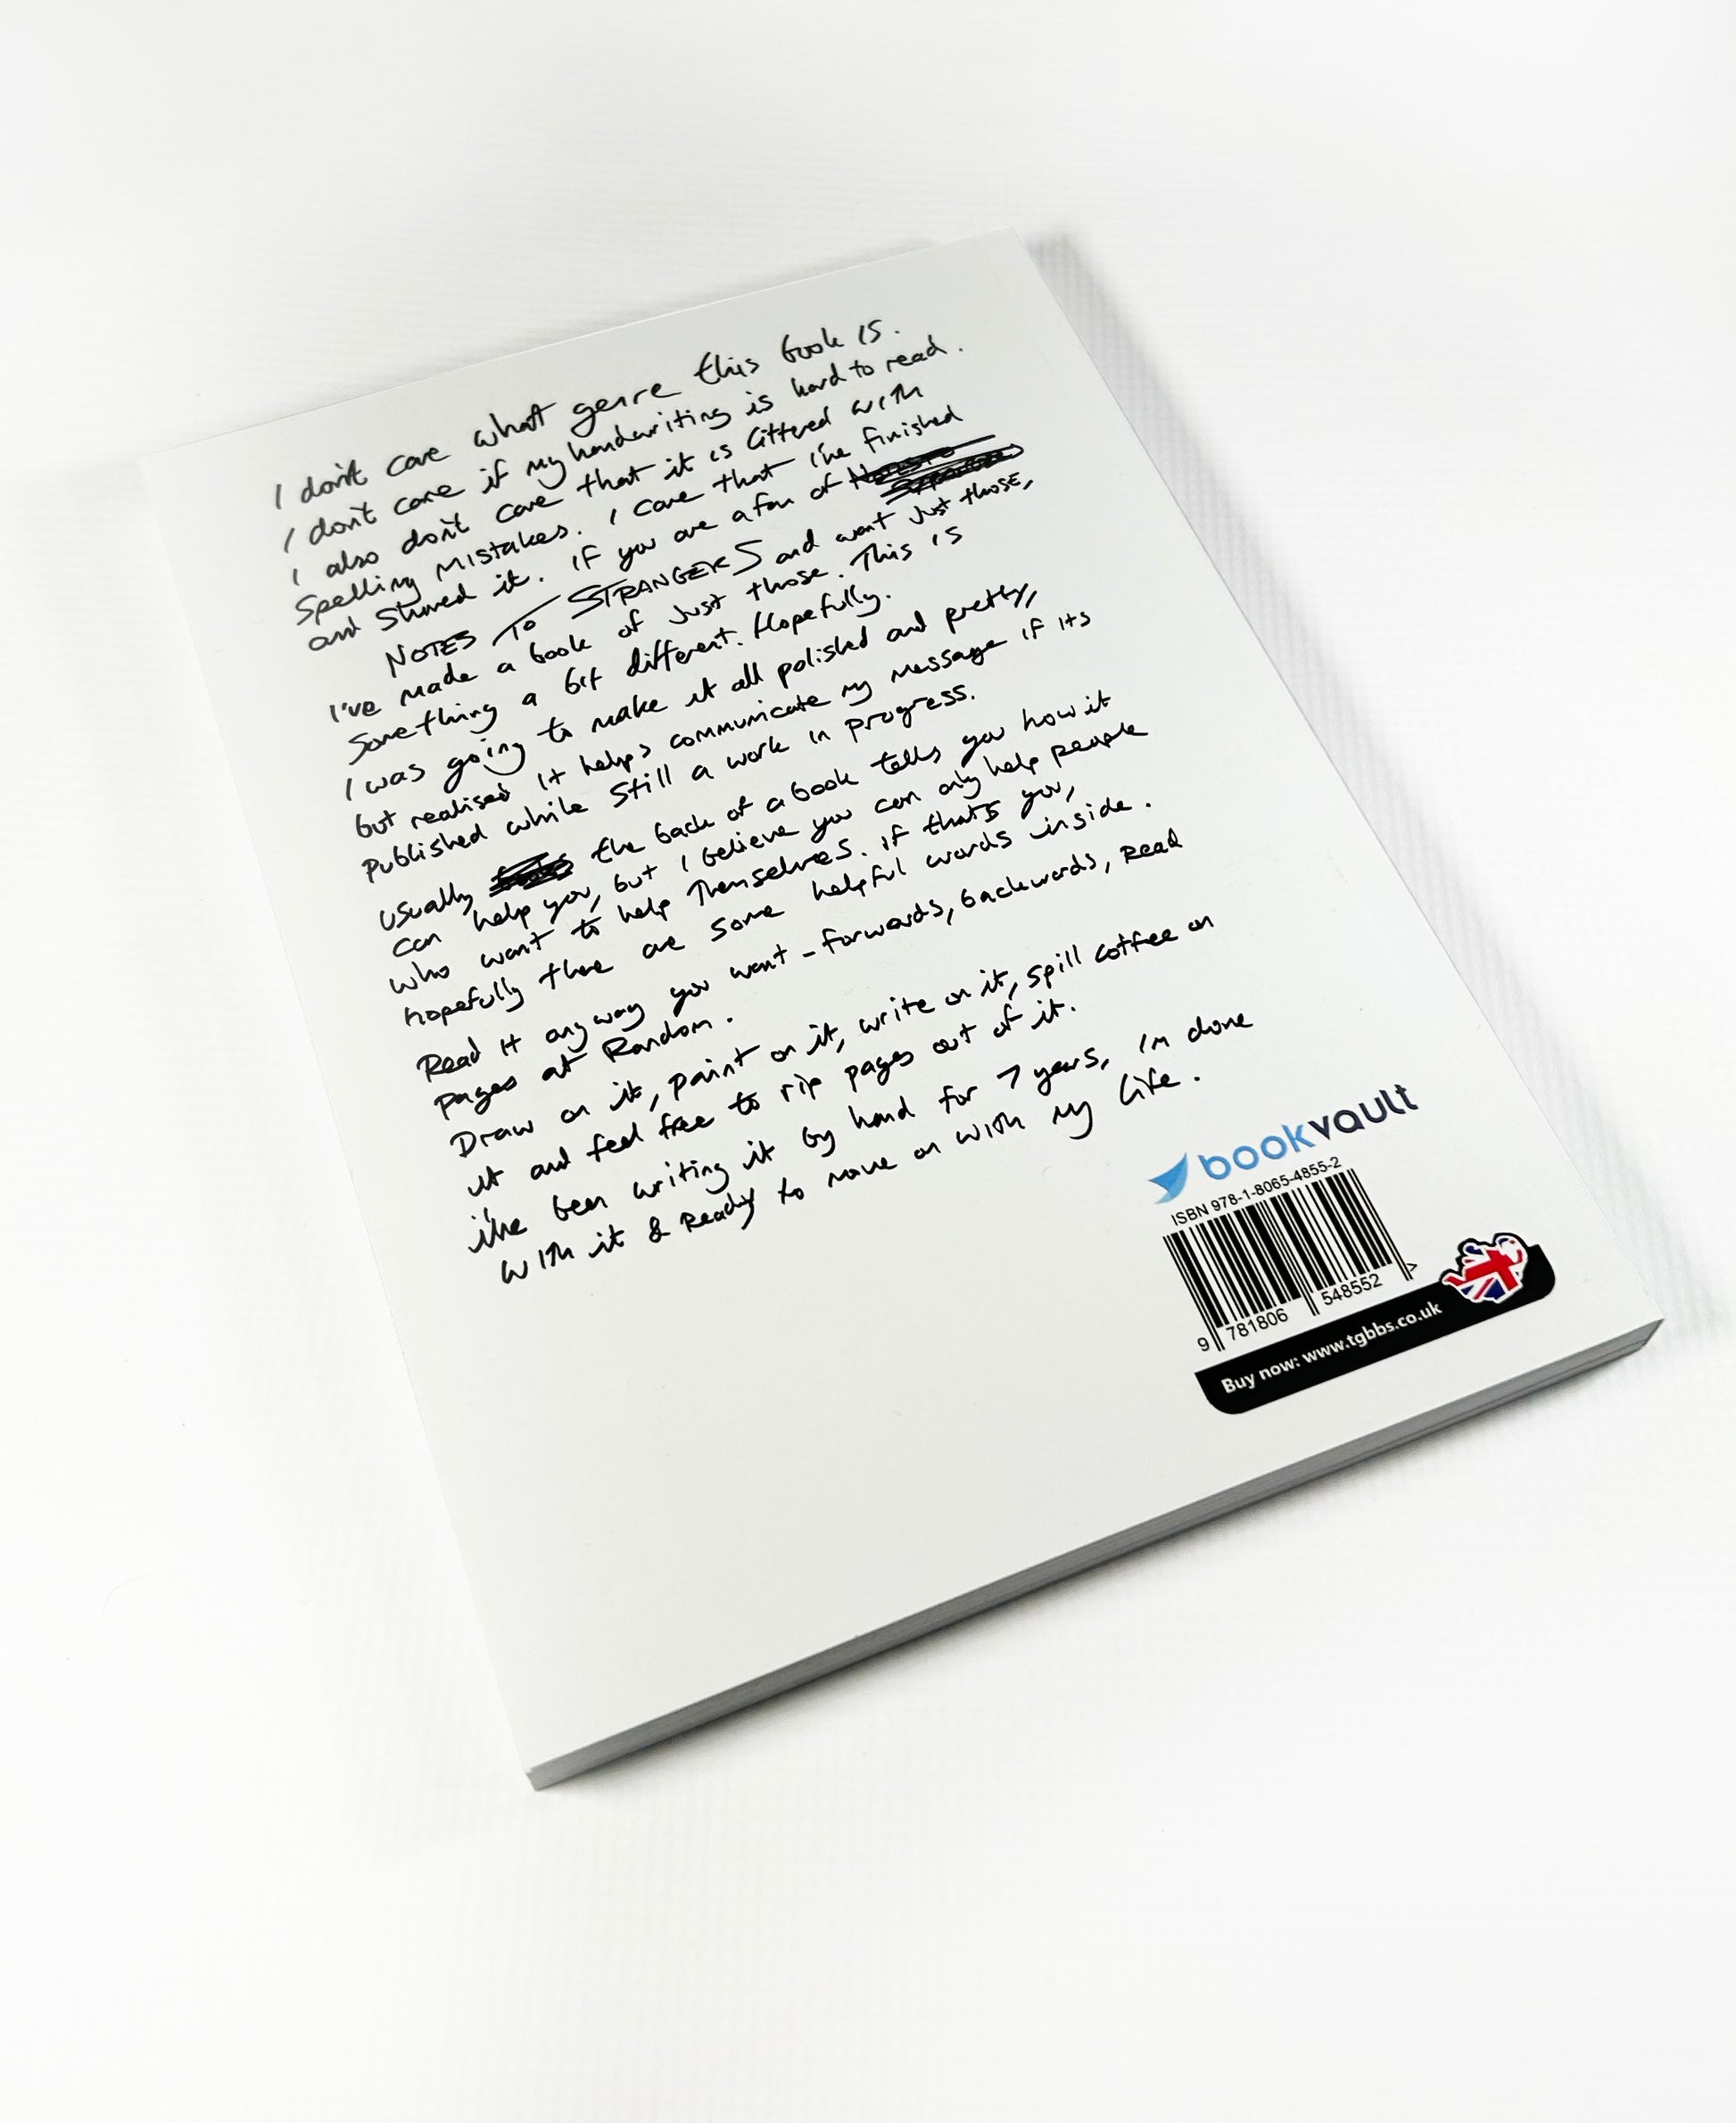 I don't care what genre this book is.
I don't care if my handwriting is hard to read.
I also don't care that it is littered with
spelling mistakes. I care that I've finished
and shared it. If you are a fan of
NOTES TO STRANGERS and want just those,
I've made a book of just those. This is
something a bit different. Hopefully.
I was going to make it all polished and pretty,
but realised it helps communicate my message if its
published while still a work in progress.
Usually the back of a book tells you how it
can help you, but I believe you can only help people
who want to help themselves. If that's you,
hopefully there are some helpful words inside.
Read it anyway you want - forwards, backwards, read
pages at random.
Draw on it, paint on it, write on it, spill coffee on
it and feel free to rip pages out of it.
I've been writing it by hand for 7 years, I'm done
with it & ready to move on with my life.
bookvault
ISBN 978-1-8065-4855-2
9 781806 548552 >
Buy now: www.tgbbs.co.uk